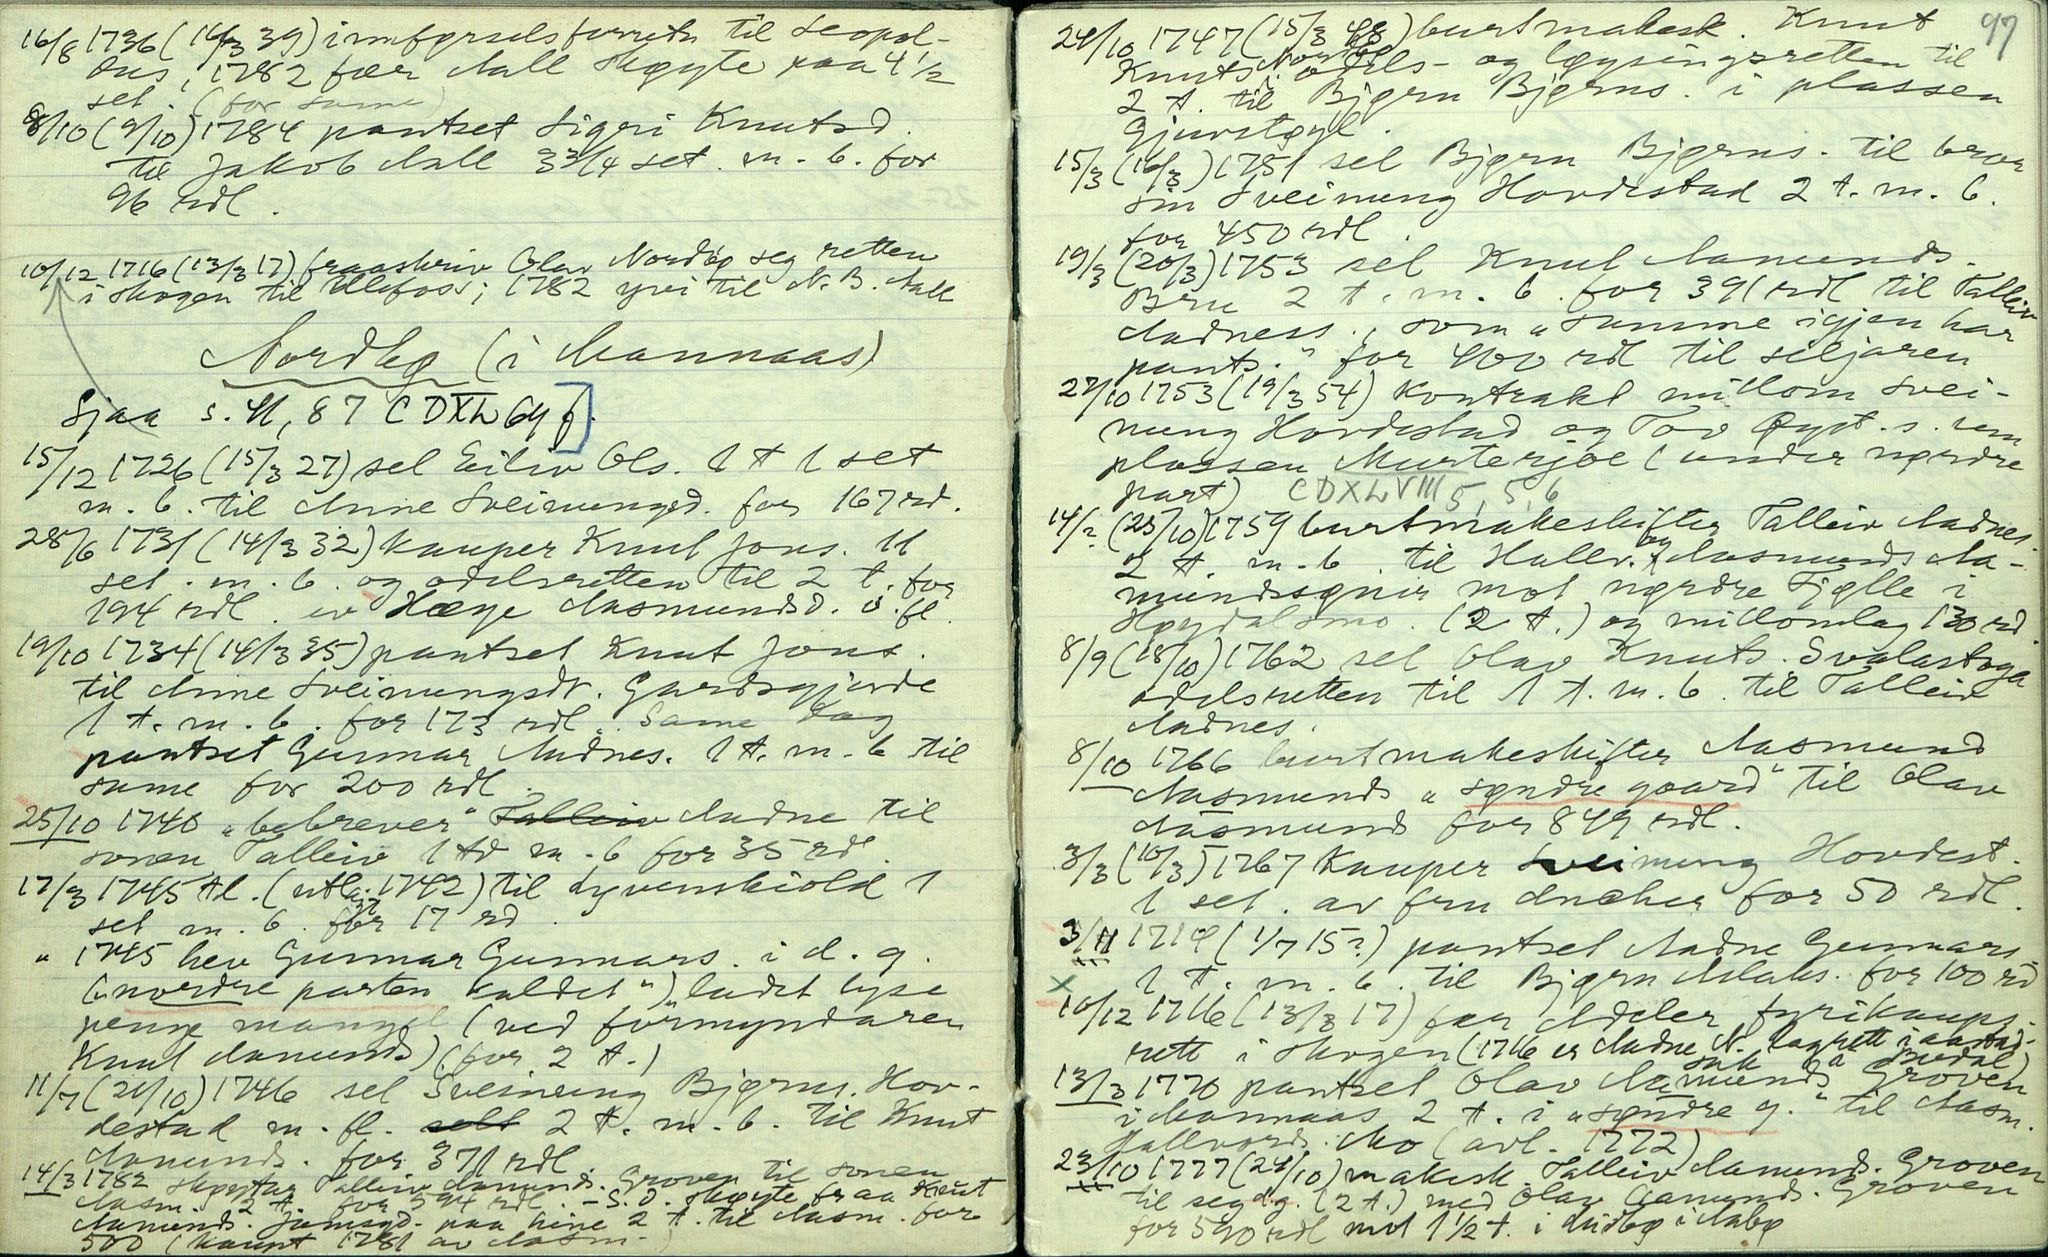 16/8 1736 (14/3 39) innførselsforretn til Leopol-
dus; 1782 fær Aall skøyte paa 4 1/2
set. (for same)
8/10 (9/10) 1784 pantset Sigri Knutsd.
til Jakob Aall 3 3/4 set. m. b. for
96 rdl.
10/12 1716 (13/3 17) fraaskriv Olav Nordbø seg retten
i skogen til Ulefoss; 1782 yvi til N. B. Aall
Nordbø (i Mannaas)
Sjaa s. 41, 87 CDXL 64 f.
15/12 1726 (15/3 27) sel Eiliv Ols. 1 t 1 set
m. b. til Anne Sveinungsd. for 167 rd.
28/6 1731 (14/3 32) kauper Knut Jons. 11
set. m. b. og odelsretten til 2 t. for
194 rdl. av Hæge Aasmundsd. o. fl.
19/10 1734 (14/3 35) pantset Knut Jons.
til Anne Sveinungsdr. Gardsgjorde
1 t. m. b. for 173 rdl. Same dag
pantset Gunnar Aadnes. 1 t. m. b til
same for 200 rdl.
25/10 1740 "bebrever" Talleiv Aadne til
sonen Talleiv 1 td m. b for 35 rdl.
17/3 1745 tl. (utl. 1742) til Løvenskiold 1
set m. b. for 17 rd.
" 1745 hev Gunnar Gunnars. i d. g.
("nordre parten kaldet") ladet lyse
penge mangel (ved formyndaren
Knut Aamunds) (for 2 t.)
11/7 (21/10) 1746 sel Sveinung Bjørns. Hov-
destad m. fl. selt 2 t. m. b. til Knut
Aamunds. for 371 rdl
14/3 1782 skøytar Talleiv Aamunds. Groven til sonen
Aasm. 2 t. for 594 rdl. – S. d. skøyte fraa Knut
Aamunds. Jamsgd. paa hine 2 t. til Aasm. for
500 (kaupt 1781 av Aasm.)
97
24/10 1747 (15/3 48) burtmakesk. Knut
Knuts. Nordbø odels- og løysingsretten til
2 t. til Bjørn Bjørns. i plassen
Gjuvstøyl.
15/3 (16/3) 1751 sel Bjørn Bjørns. til bror
sin Sveinung Hovdestad 2 t. m. b.
for 450 rdl.
19/3 (20/3) 1753 sel Knut Aamunds.
Bru 2 t. m. b. for 391 rdl til Talleiv
Aadness., som "samme igjen har
pants." for 400 rdl til seljaren
27/10 1753 (19/3 54) kontrakt millom Svei-
nung Hovdestad og Tov Øyst. s. um
plassen Murterjoe (under nørdre
part) CDXLVIII 5, 5, 6
14/? (25/10) 1759 burtmakeskifter Talleiv Aadnes.
2 t. m. b. til Hallv. og Aasmunds Aa-
mundssønir mot nørdre Fjølle i
Høydalsmo. (2 t.) og millomlag 130 rd
8/9 (18/10) 1762 sel Olav Knuts. Svalastoga
odelsretten til 1 t. m. b. til Talleiv
Aadnes.
8/10 1766 burtmakeskifter Aasmund
Aasmunds "søndre gaard" til Olav
Aasmunds for 849 rdl.
3/3 (10/3) 1767 kauper Sveinung Hovdest.
1 set. av fru Ancher for 50 rdl.
3/11 1714 (1/7 15?) pantset Aadne Gunnars.
x 1 t. m. b. til Bjørn Aslaks. for 100 rd
10/12 1716 (13/3 17) fær Adeler fyrikaups-
rett i skogen (1716 er Aadne N. lagrett i aastad-
sak a Bredal)
13/3 1770 pantset Olav Aamunds Groven
i Mannaas 2 t. i "søndre g." til Aasm.
Hallvords. Mo (avl. 1772)
23/10 1777 (24/10) makesk. Talleiv Aamunds. Groven
til seg d. g. (2 t.) med Olav Aamunds. Groven
for 590 rdl mot 1 1/2 t. i Midbø i Aabø